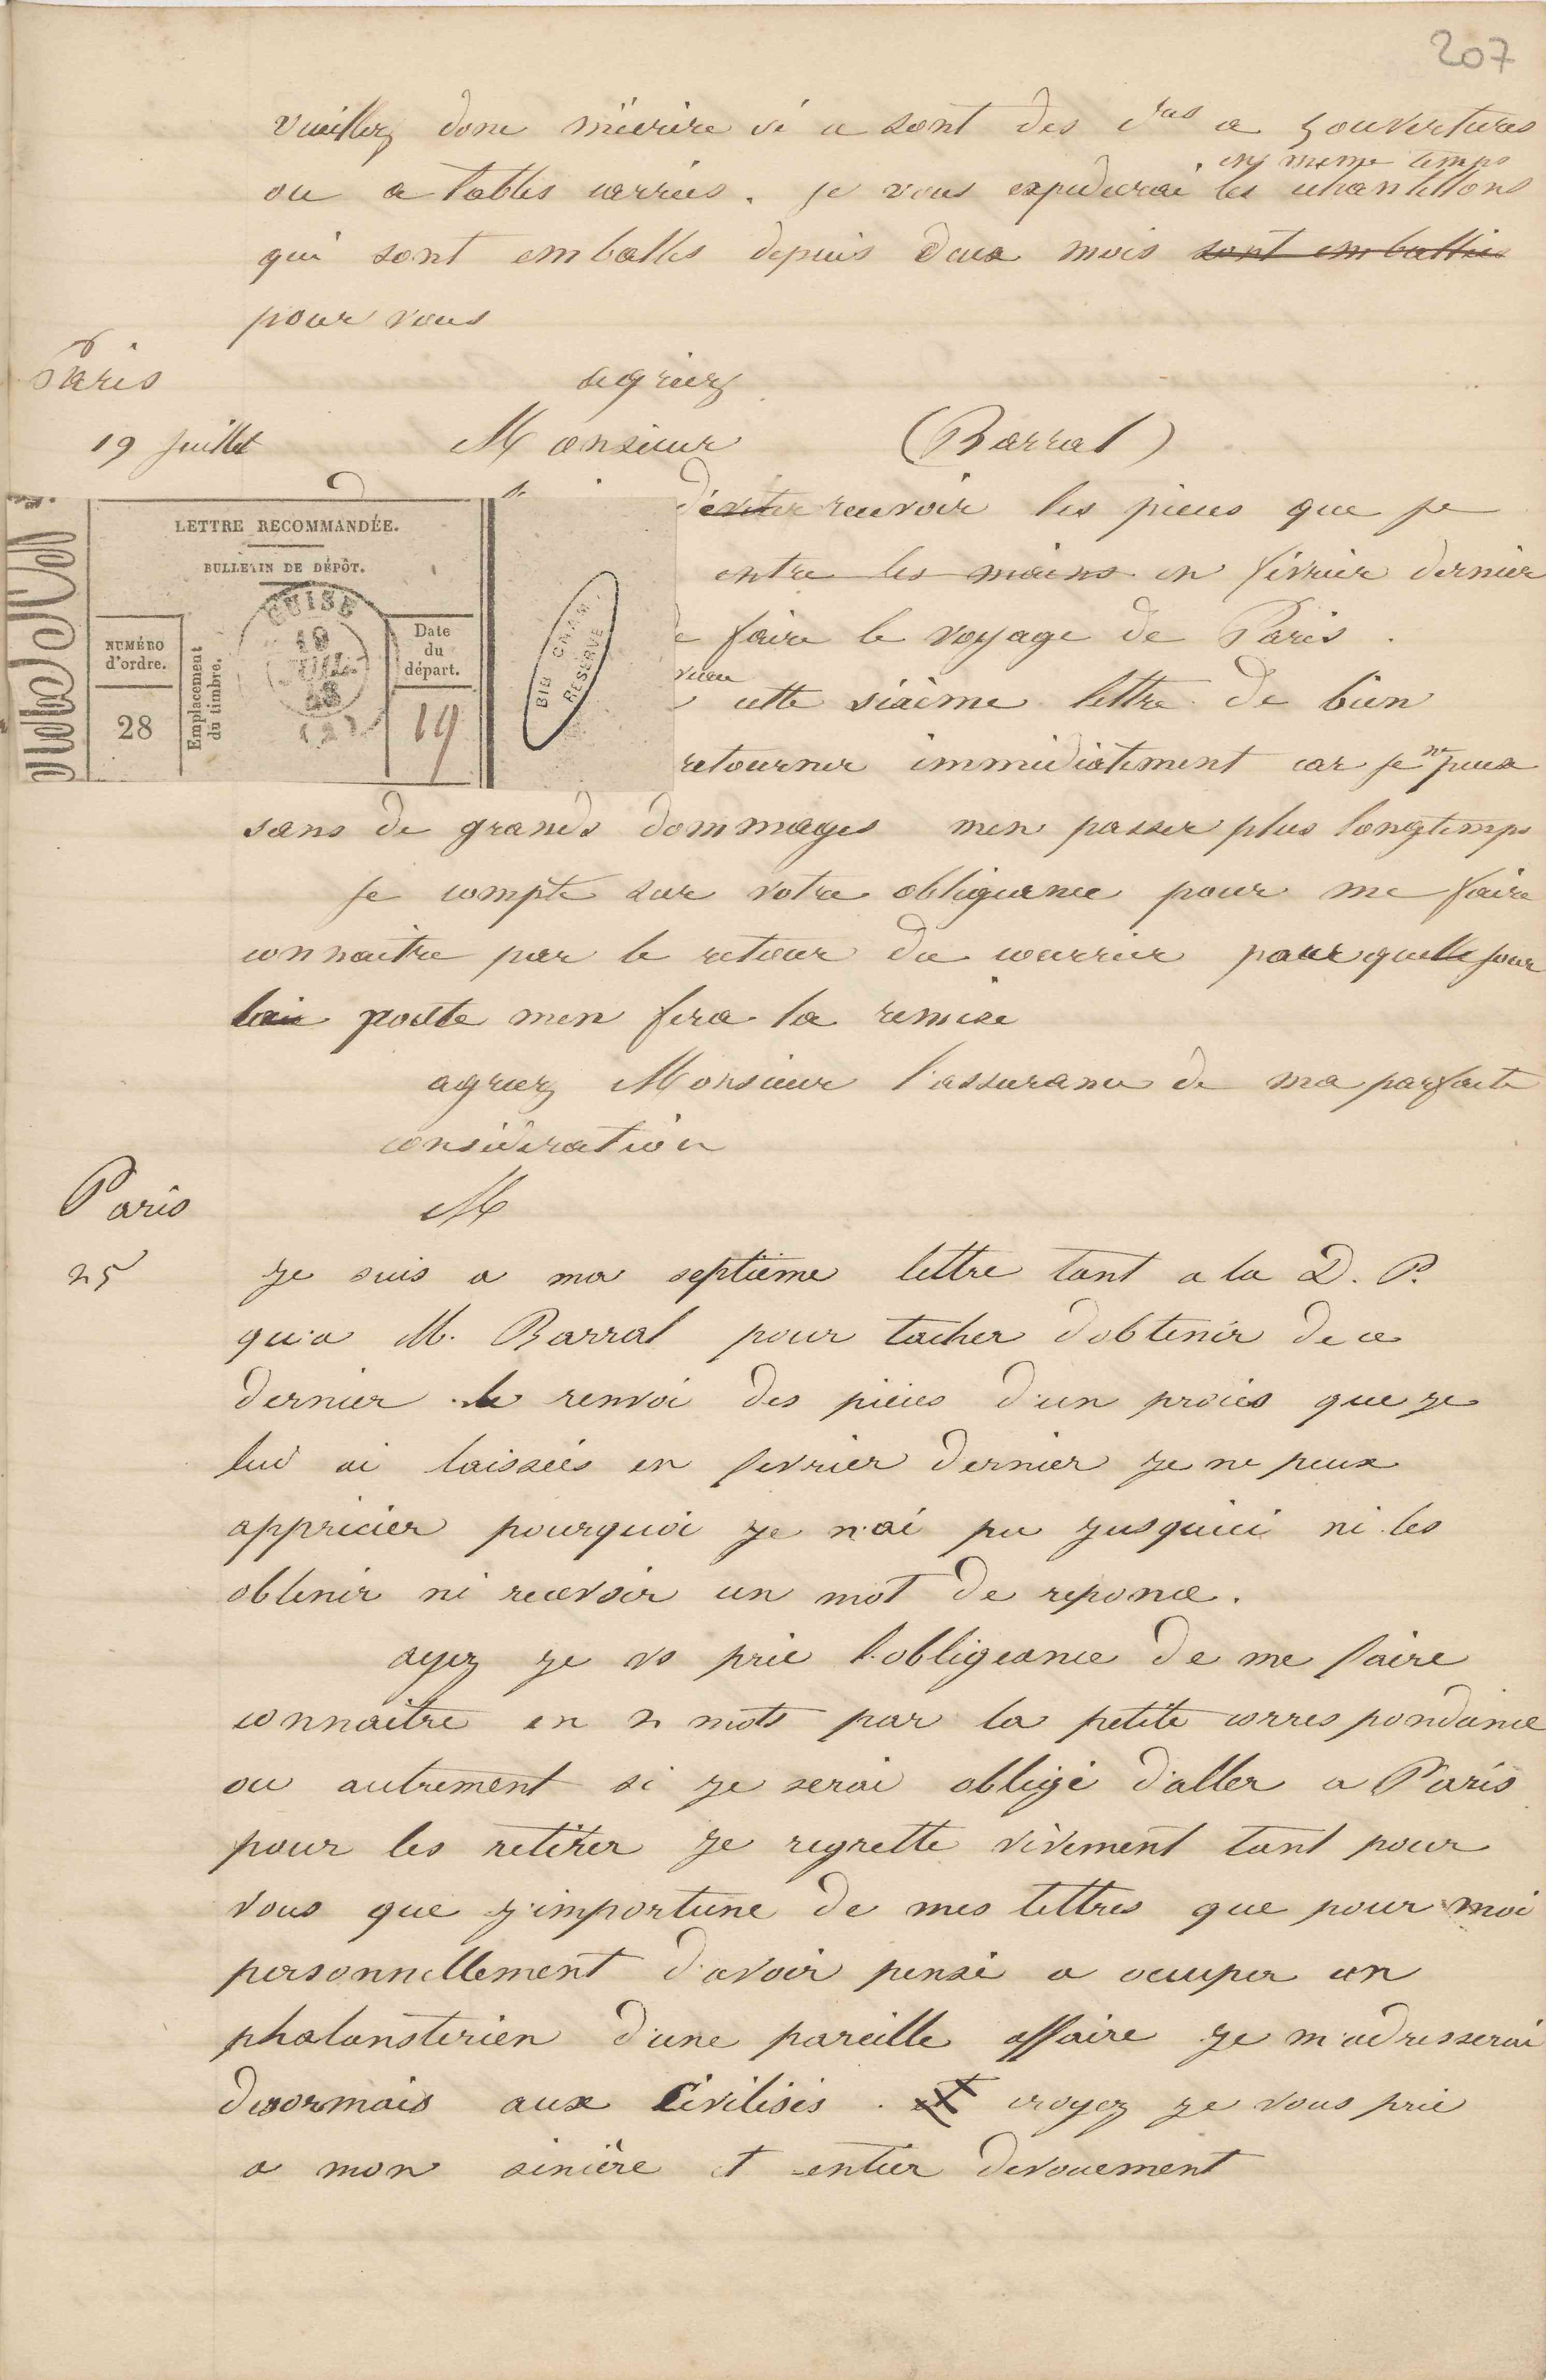 207
veuillez donc m'écrire si ce sont des cras a 3 ouvertures
en meme temps
ou a tables carrées. je vous expedierai les echantillons
qui sont emballés depuis deux mois sont emballés
pour vous
agréez
Paris
19 juillet Monsieur (Barral)
d'éviter recevoir les pieces que je
entre les mains en février dernier
faire le voyage de Paris.
cette sixième lettre de bien
retourner immédiatement car je ne peux
LETTRE RECOMMANDÉE.
BULLETIN DE DÉPÔT.
NUMÉRO
d'ordre.
28
Emplacement
du timbre.
GUISE
19
JUIL.
(2)
Date
du
départ.
19
BIB CNAM
RESERVE
sans de grands dommages men passer plus longtemps
je compte sur votre obligeance pour me faire
connaitre par le retour du courrier pour quelle jour
poste men fera la remise
agréez Monsieur l'assurance de ma parfaite
considération
Paris
25
M
je suis a ma septième lettre tant a la D. P.
qu'a M. Barral pour tacher d'obtenir de ce
dernier le renvoi des pièces d'un procès que je
lui ai laissées en fevrier dernier je ne peux
apprécier pourquoi je n'ai pu jusquici ni les
obtenir ni recevoir un mot de reponce.
ayez je vs prie l'obligeance de me faire
connaitre en 2 mots par la petite correspondance
ou autrement si je serai obligé d'aller a Paris
pour les retirer je regrette vivement tant pour
vous que j'importune de mes lettres que pour moi
personnellement d'avoir pensé a occuper un
phalansterien d'une pareille affaire je m'adresserai
desormais aux Civilisés. et croyez je vous prie
a mon sincère et entier devouement